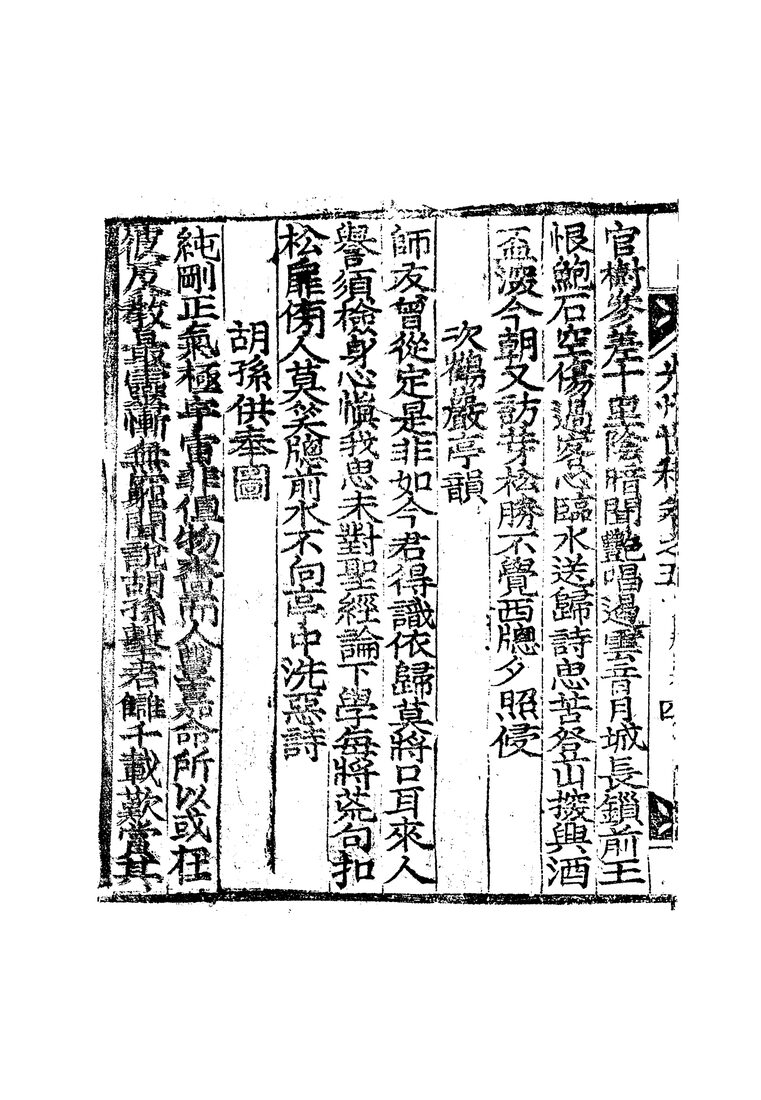 官樹參差十里陰暗聞艶唱遏雲音月城長鎖前王
恨鮑石空傷過客心臨水送歸詩思苦登山撥興酒
盃深今朝又訪芽松勝不覺西牕夕照侵
次鶴巖亭韻
師友曾從定是非如今君得識依歸莫將口耳來人
譽須檢身心愼我思未對聖經論下學每將荒句扣
松扉傍人莫笑牕前水不向亭中洗惡詩
胡孫供奉圖
純剛正氣極亭 非値物 人豊嘉命所以或在
彼反敎最靈慚無 聞說胡孫擊君讎千載歎當其
卷之五
四